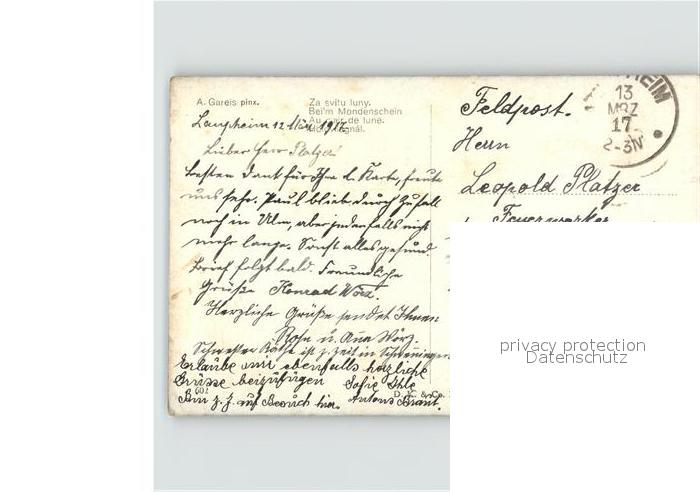 A. Gareis pinx.
Za svitu luny.
Bei'm Mondenschein
Au clair de lune.
Langheim 12. März 1917.
Lieber Herr Platzer
besten Dank für Ihre l. Karte, freute
uns sehr. Paul blieb durch Zufall
noch in Ulm, aber jedenfalls nicht
mehr lange. Sonst alles gesund.
Brief folgt bald. Freundliche
Grüße Konrad Wörz.
Herzliche Grüße sendet Ihnen
Rosa u. Anna Wörz.
Schwester Käthe ist z. Zeit in
Erlaube mir ebenfalls herzliche
Grüsse beizufügen Sofie Ihle
Bin z. Z. auf Besuch hier. Antonie
601
D. K. & Co.
Feldpost.
Herrn
Leopold Platzer
Feuerwerker
HEIM
13
MRZ
17
2-3N
privacy protection
Datenschutz